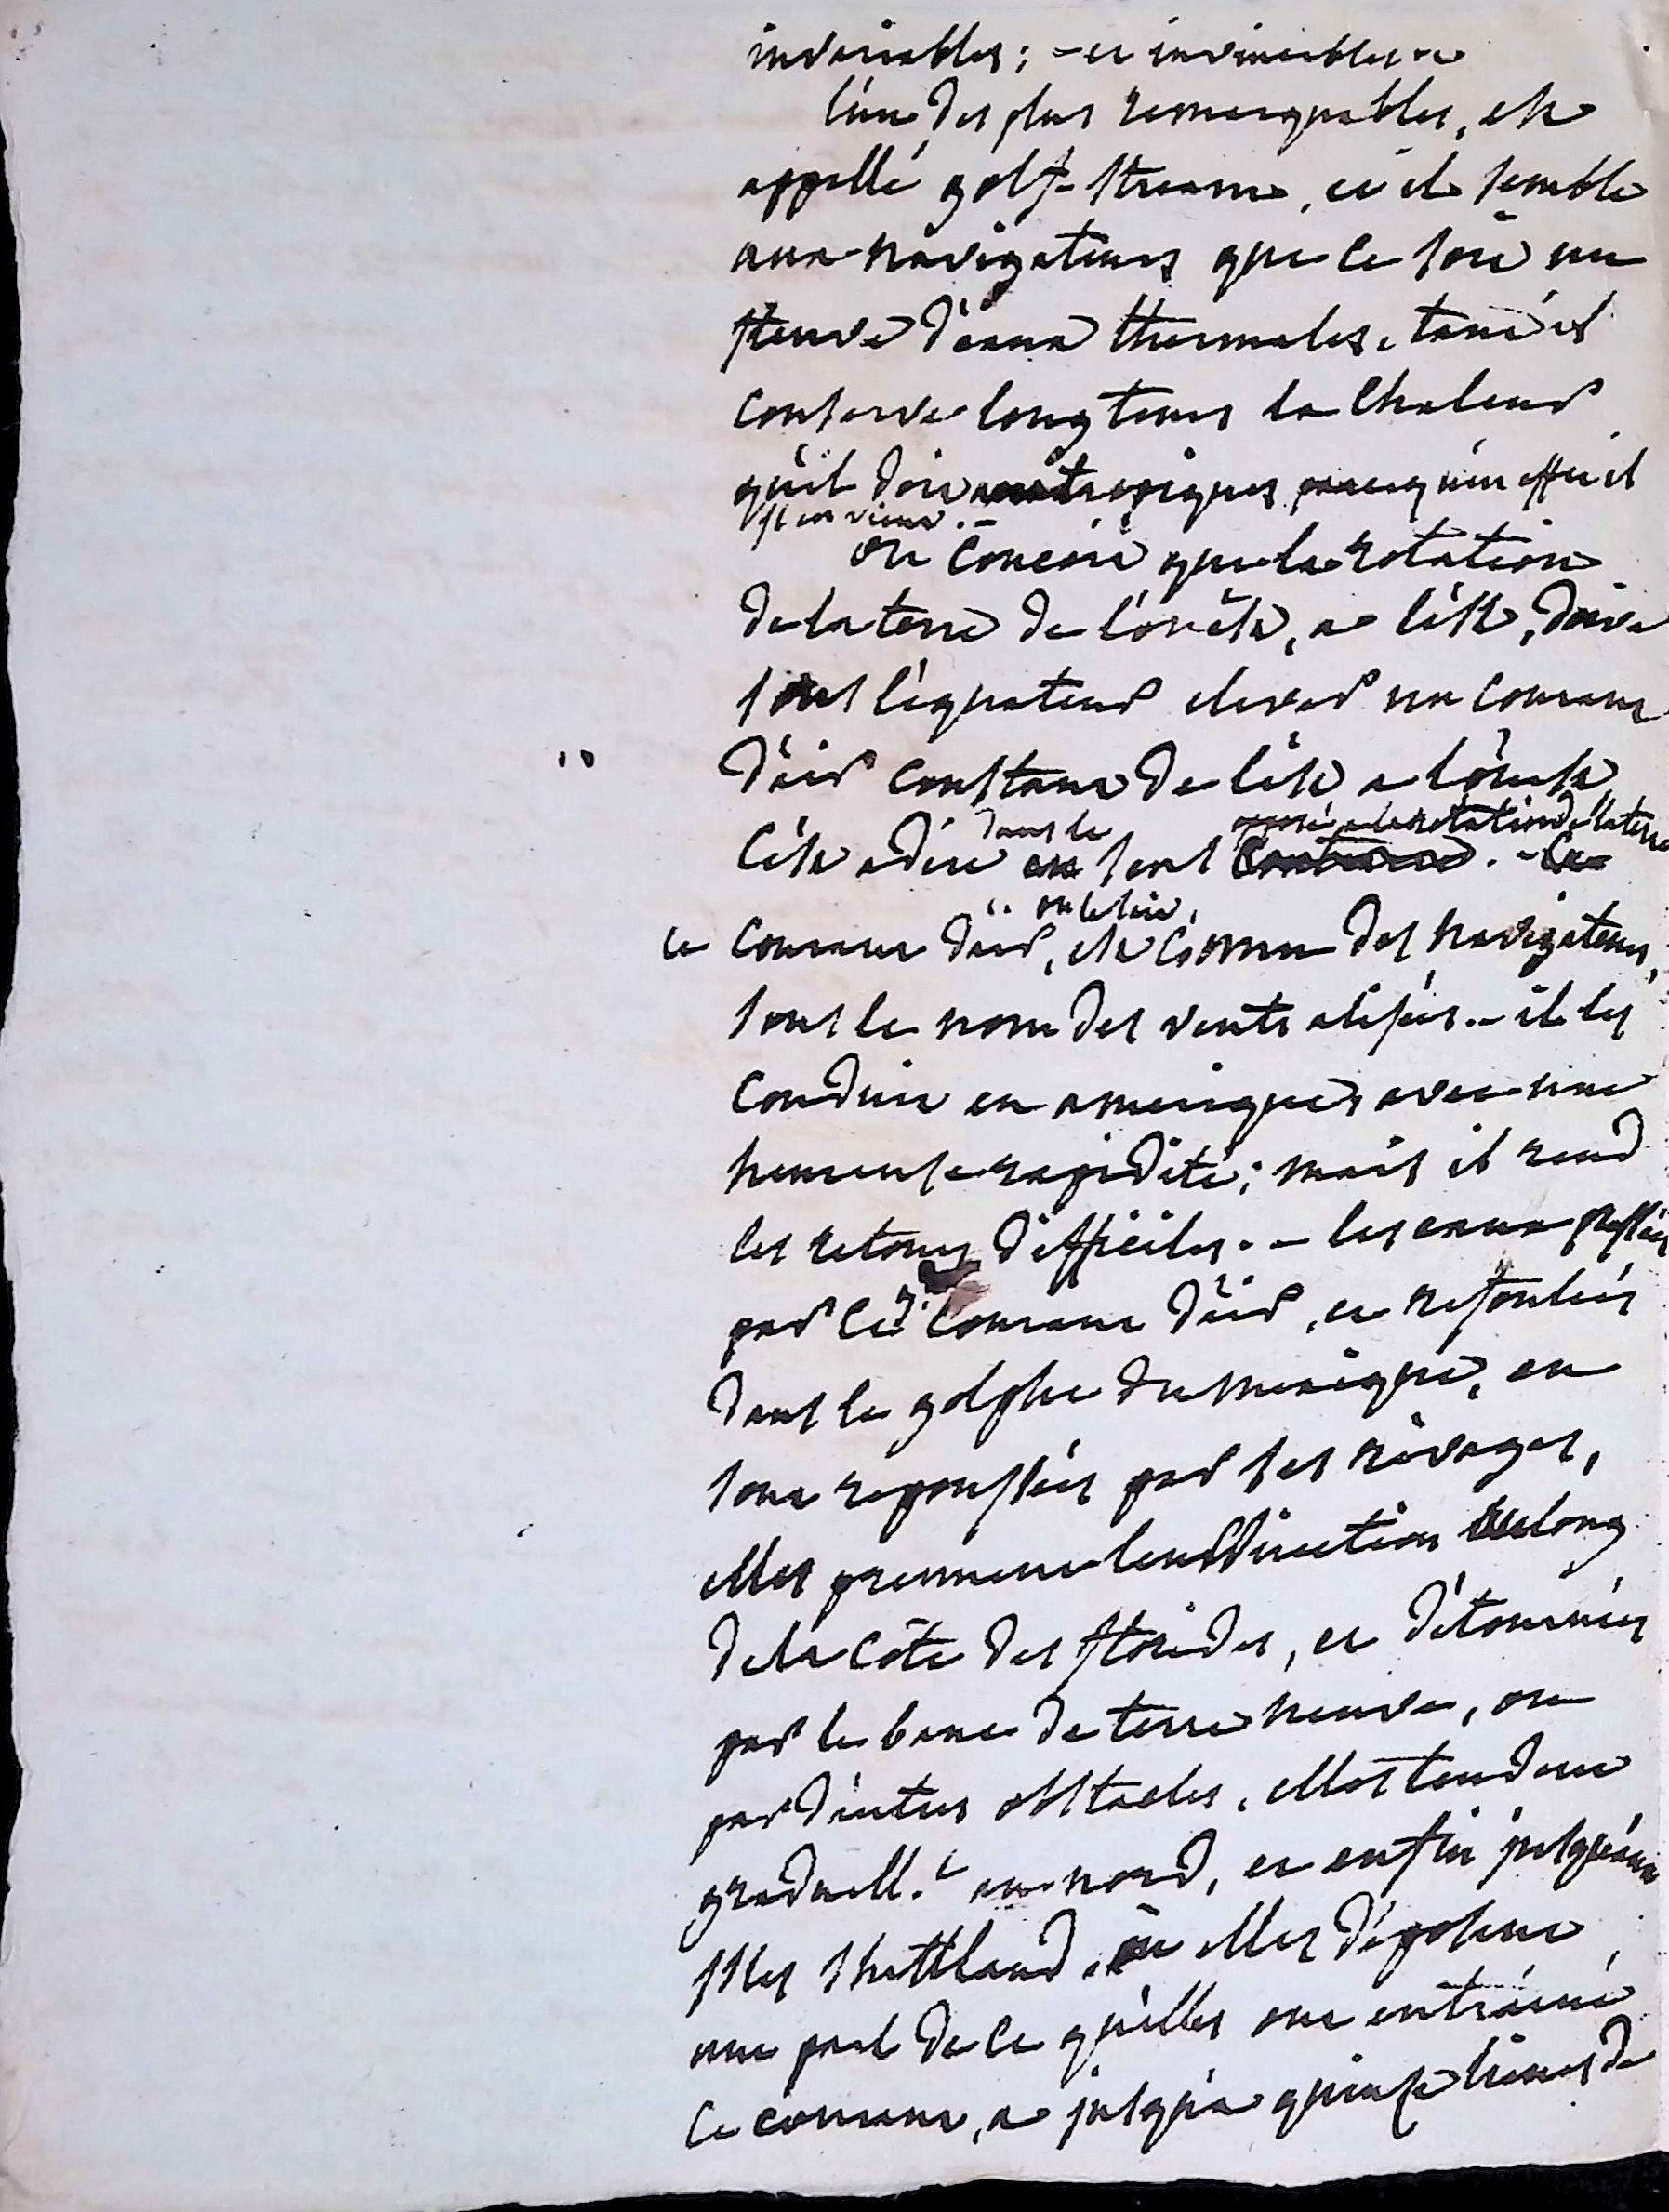 invariables; - et invincibles -
l'un des plus remarquables, est
appellé golf-stream, et il semble
aux navigateurs que ce soit un
fleuve d'eaux thermales, tant il
conserve longtems la chaleur
qu'il doit aux tropiques parcequ'en effet il
en vient. -
on concoit que la rotation
de la terre de l'ouest, a l'est, doive
sous l'equateur elever un courant
d'air constant de l'est a l'ouest
c'est adire dans le sens opposé a la rotation de la terre
" on le sait,
ce courant d'air, est connu des navigateurs,
sous le nom des vents alisés. - il les
conduit en amerique, avec une
heureuse rapidité; mais il rend
les retours difficiles. - les eaux pressées
par ce courant d'air, et refoulées
dans le golphe du mexique, en
sont repoussées par ses rivages,
elles prennent leur direction le long
de la côte des florides, et détournées
par le banc de terre neuve, ou
par d'autres obstacles, elles tendent
graduell.t au nord, et enfin jusqu'aux
isles shettland, où elles déposent
une part de ce qu'elles ont entraîné
ce courant, a jusqu'a quinze lieues de